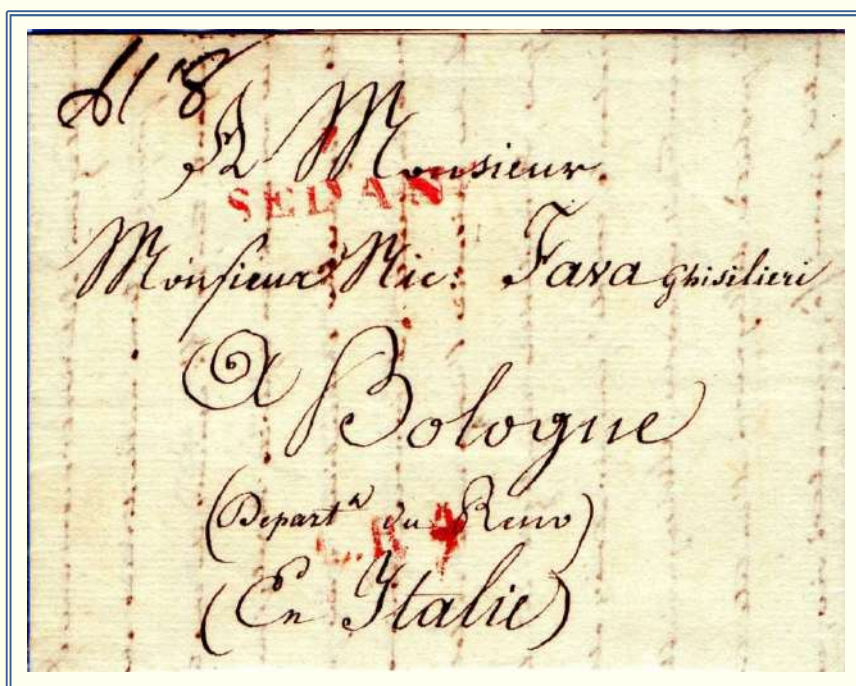 A Monsieur
SEDAN
Monsieur Nic: Fava Ghisilieri
A Bologne
(Depart^t du Reno)
(En Italie)